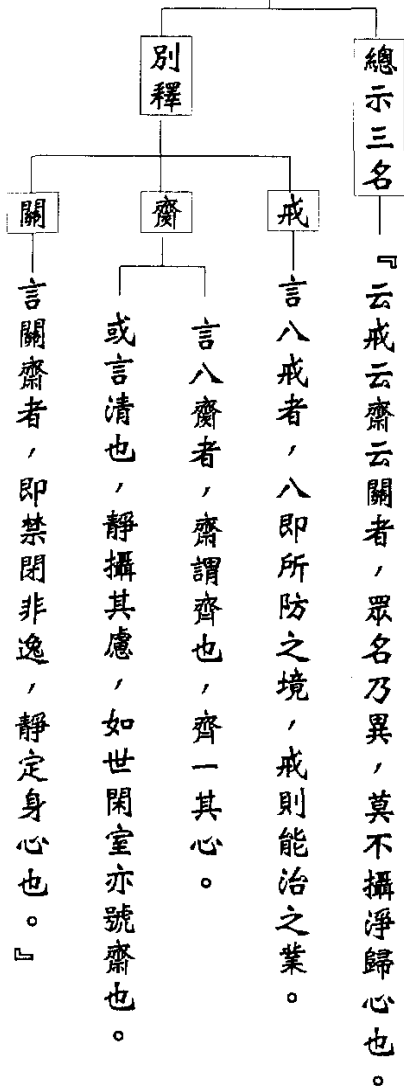 總示三名
『云戒云齋云關者，眾名乃異，莫不攝淨歸心也。
別釋
戒
言八戒者，八即所防之境，戒則能治之業。
齋
言八齋者，齋謂齊也，齊一其心。
或言清也，靜攝其慮，如世閑室亦號齋也。
關
言關齋者，即禁閉非逸，靜定身心也。』